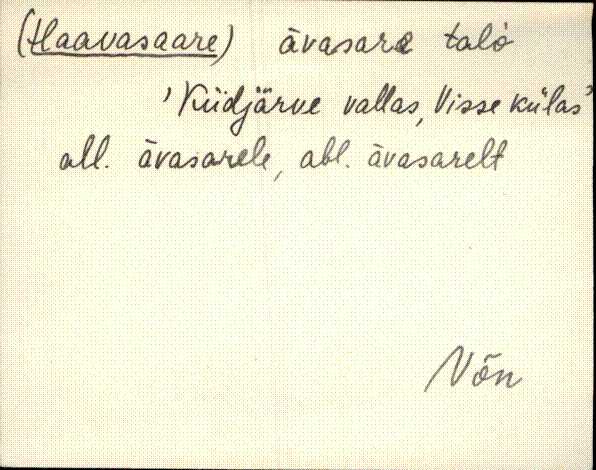 (Haavasaare) āvasare talo
'Küdjärve vallas, Visse külas'
all. āvasarele, abl. āvasarelt
Nõn